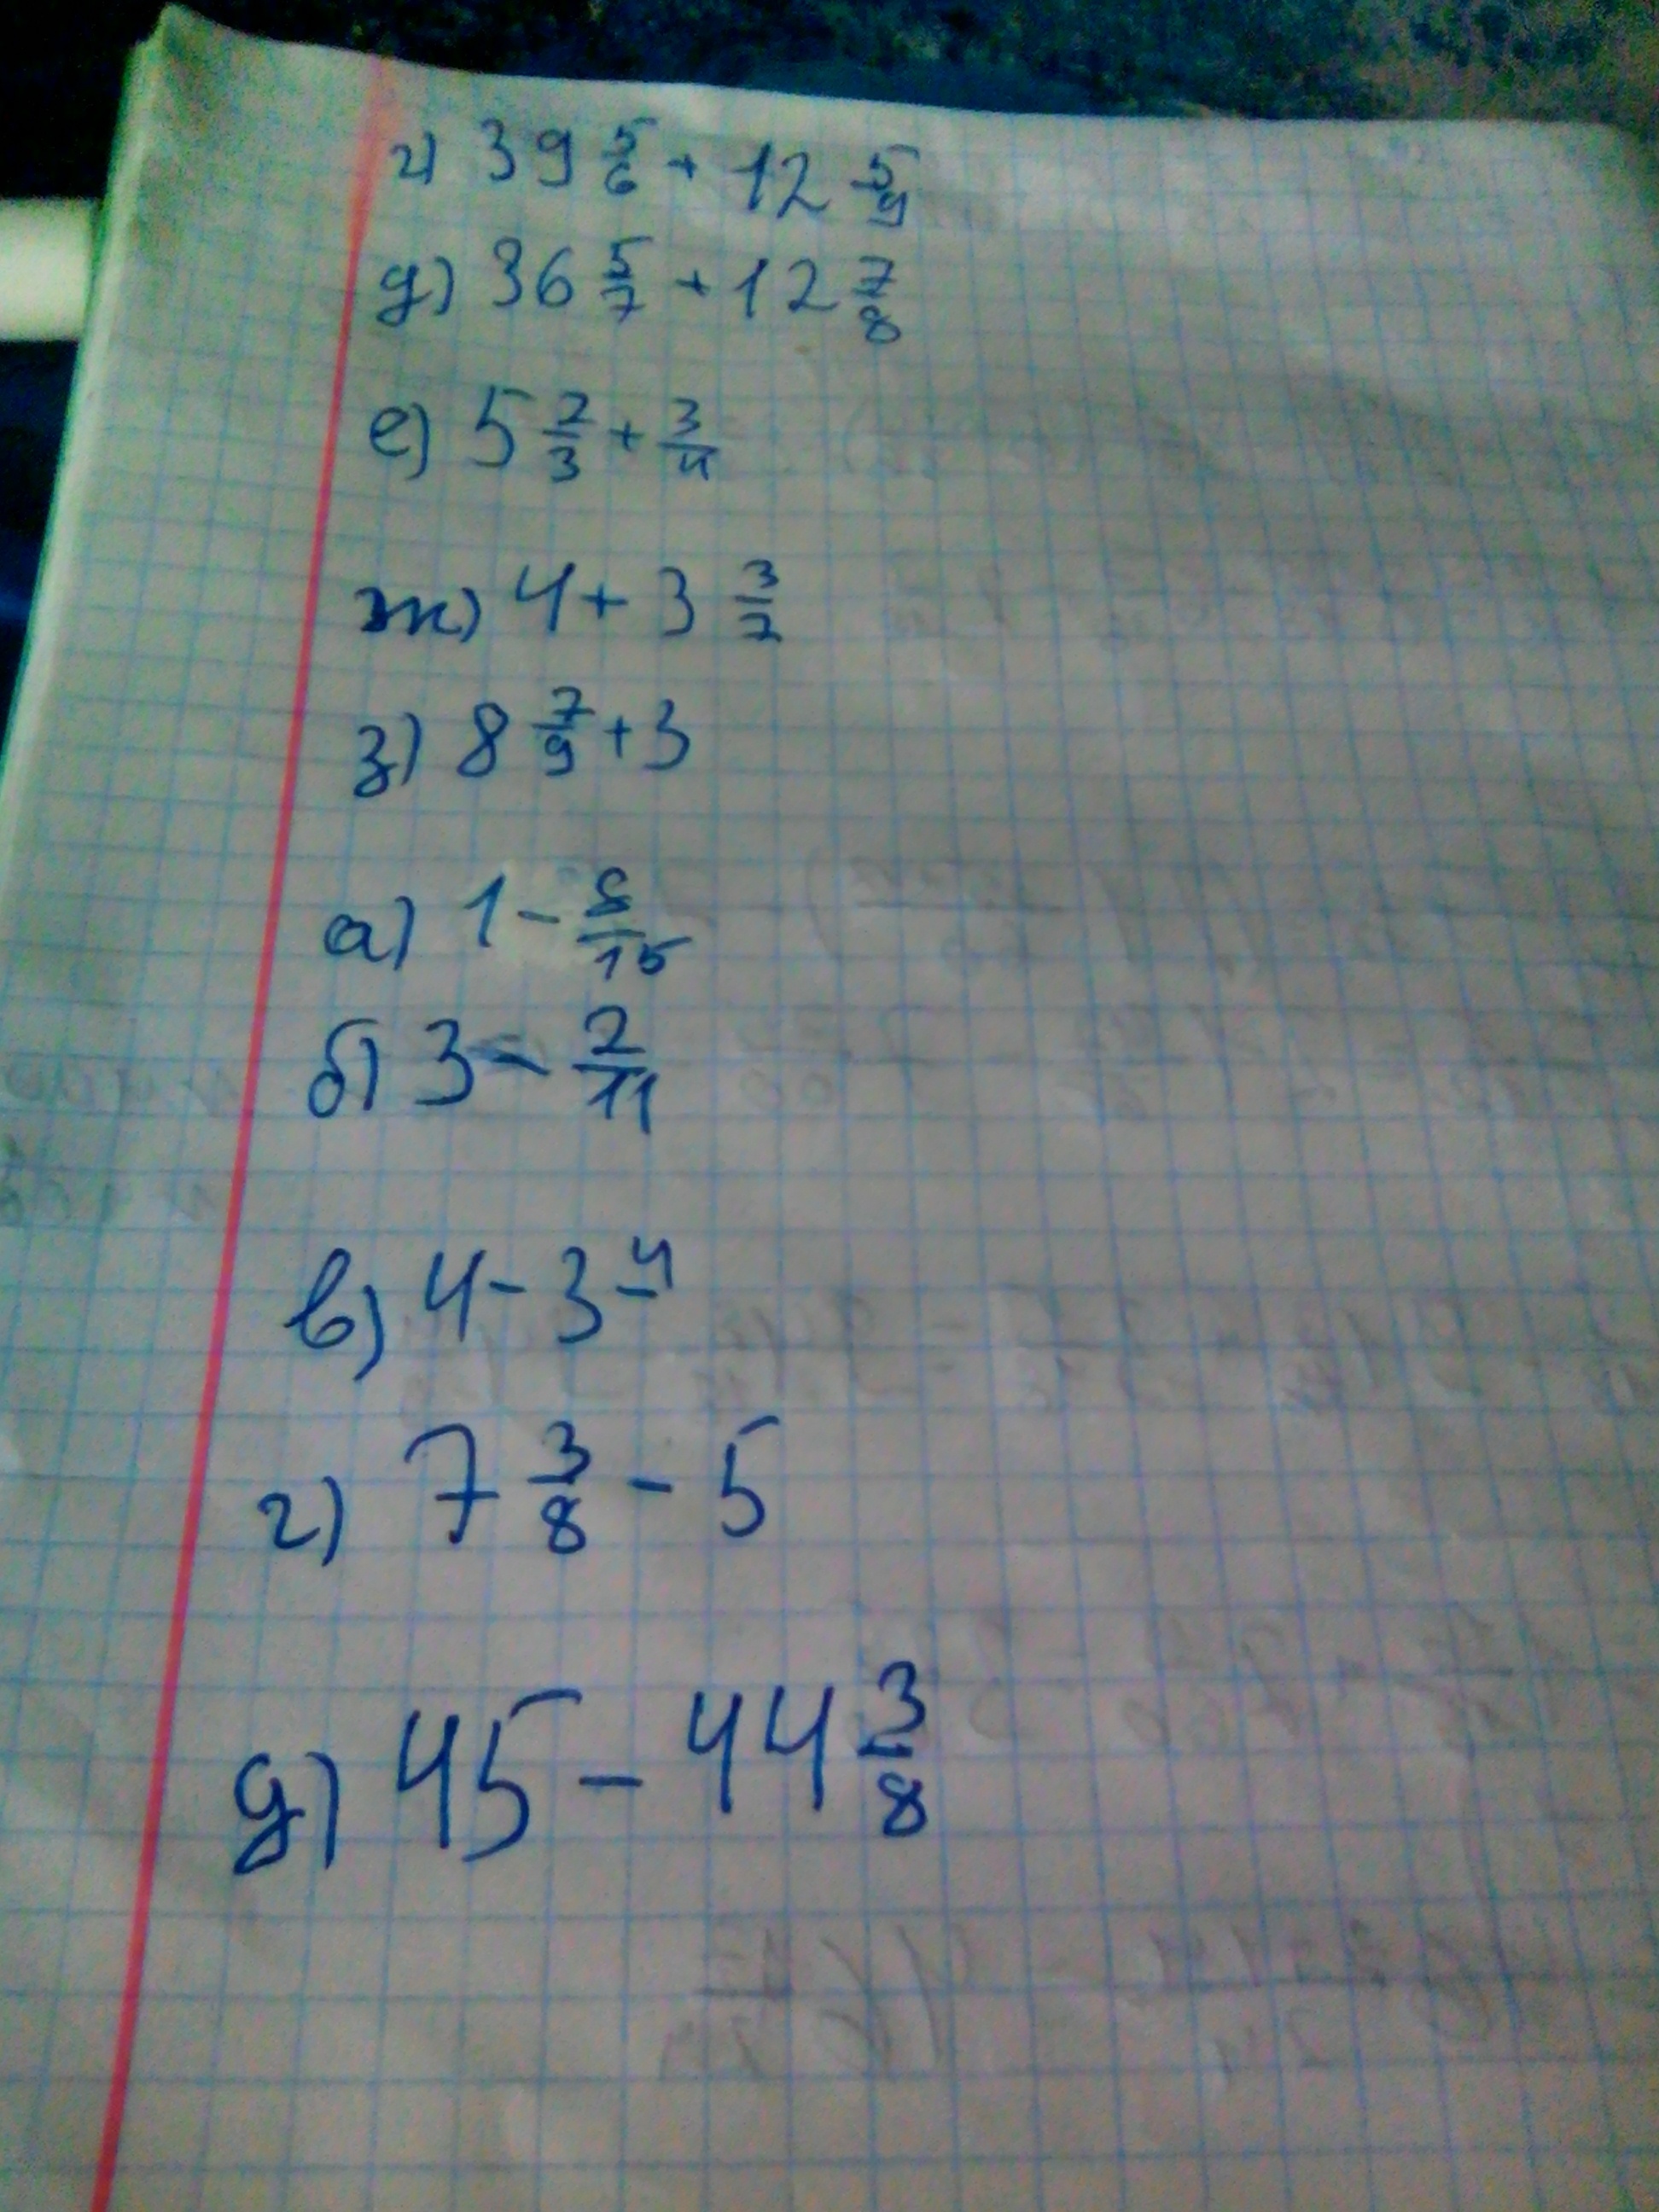 г) 39 5/6 + 12 5/9
д) 36 5/7 + 12 7/8
е) 5 2/3 + 3/4
ж) 4 + 3 3/7
з) 8 7/9 + 3
а) 1 - 8/15
б) 3 - 2/11
в) 4 - 3 4/
г) 7 3/8 - 5
д) 45 - 44 3/8